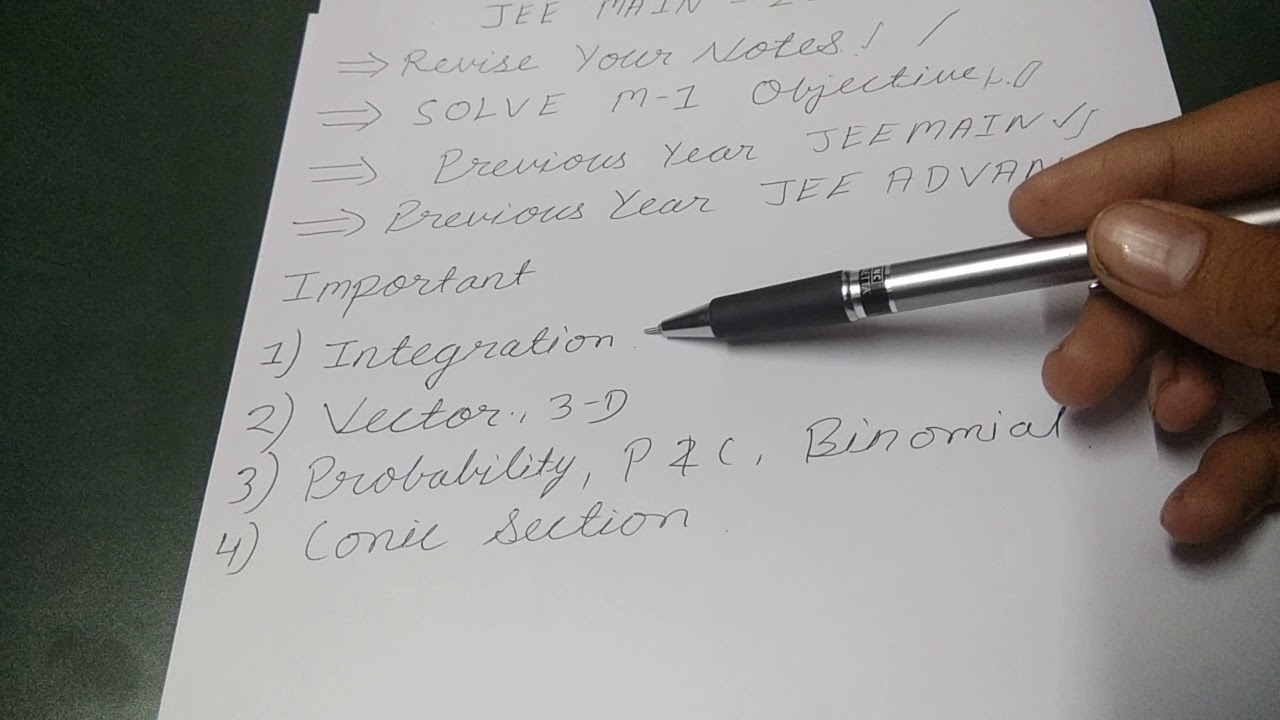 JEE MAIN - 2
⇒ Revise Your Notes
⇒ SOLVE M-1 Objective
⇒ Previous Year JEE MAIN
⇒ Previous Year JEE ADVAN
Important
1) Integration
2) Vector, 3-D
3) Probability, P & C, Binomial
4) Conic Section